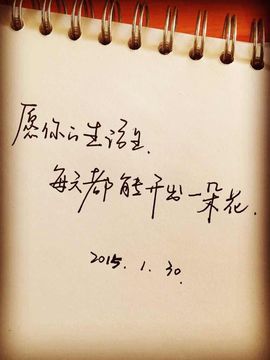 愿你的生活里,
每天都能开出一朵花.
2015.1.30.